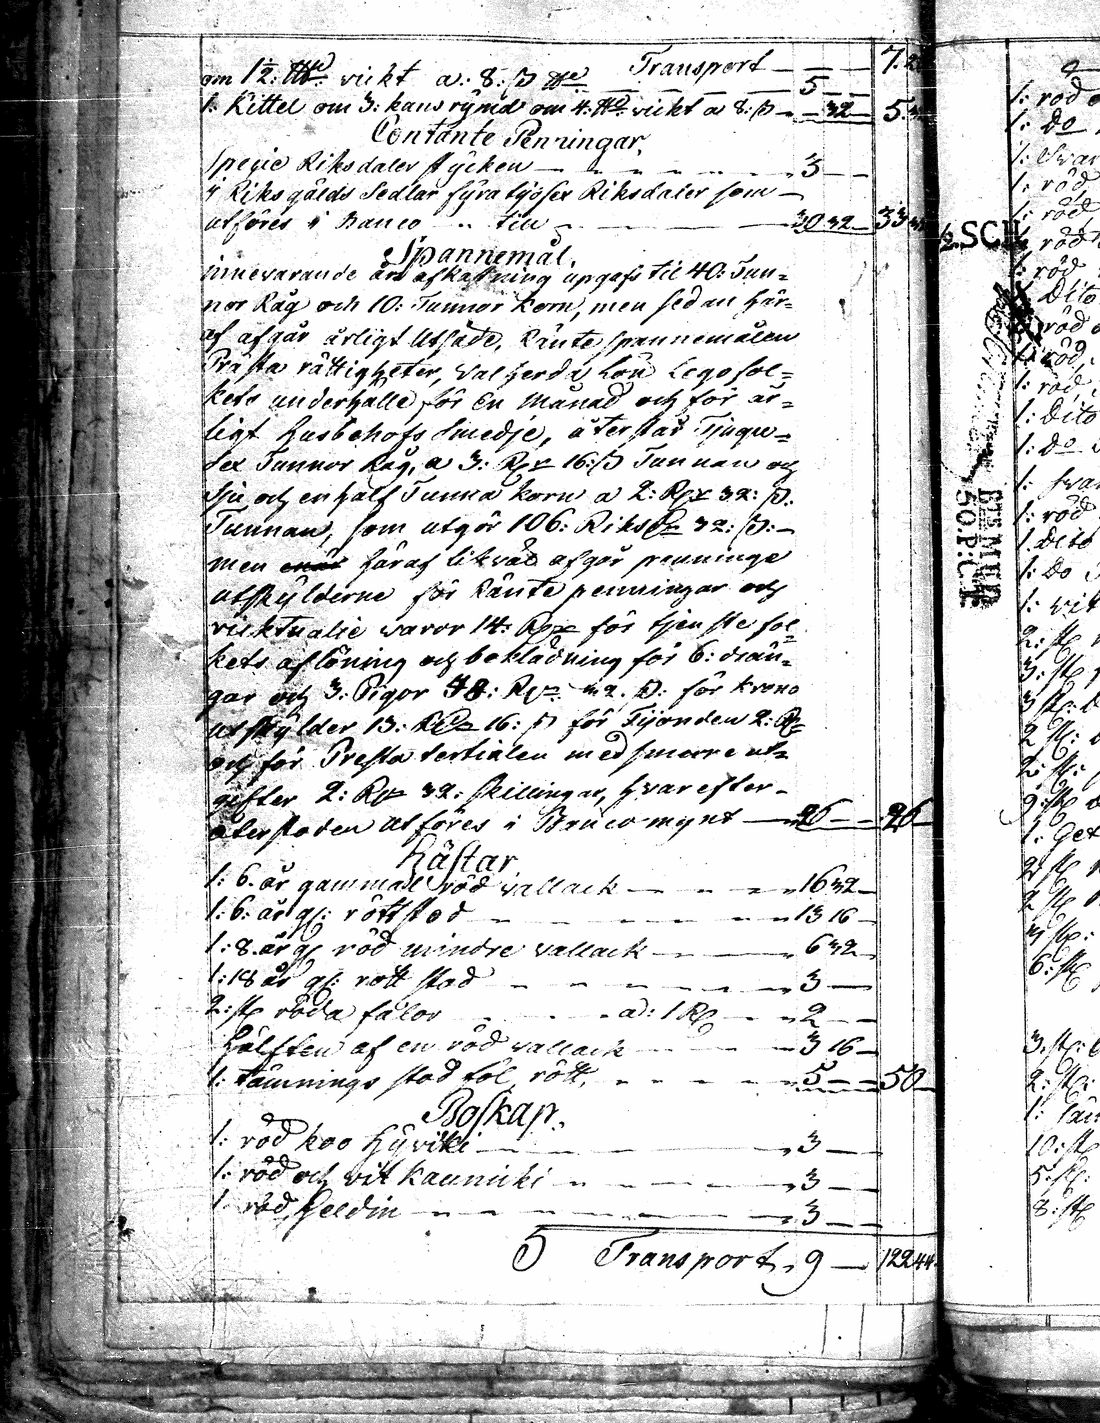 Transport — — — 7.
om 1½: ℔ vickt a: 8: ß ℔ — — 5 —
1: Kittel om 3: kans rÿmd om 4: ℔ vikt a 8: ß — — 32 — 5.
Contante Penningar,
Specie Riksdaler stÿcken — — — 3 —
i Riksgälds Sedlar fÿra Riksdaler som —
utföres i Banco — 30 32 — 33
Spannemål,
innevarande års afkastning upgafs til 40: Tun=
nor Råg och 10: Tunnor korn, men sedan här=
af afgår årligt Utsäde, Ränte spannemålen
Prästa rättigheter, Valherda Lön Legofol=
kets underhålle för En Månad och för år=
ligt husbehofs Smedje, återstår Tjugu=
sex Tunnor Råg, a 3: Rdr 16: ß Tunnan och
sju och en half Tunna korn a 2: Rdr 32: ß:
Tunnan, som utgör 106: Riksdr 32: ß: —
men häraf likväl afgår penninge
utskÿlderne för Ränte penningar och
vicktualie varor 14: Rdr för tjenste fol=
kets aflöning och beklädning för 6: drän=
gar och 3: Pigor 48: Rdr 32. ß: för krono
utskÿlder 13: Rdr 16: ß för Tijonden 2: Rdr
och för Presta tertialen med smerre ut=
gifter 2: Rdr 32: skillingar, hvarefter —
återstoden utföres i Banco mynt — 26 — — 26 —
Hästar
1: 6. år gammal röd vallack — — — 16 32 —
1: 6: år gl: rött stod — — — 13 16 —
1: 8. år gl röd mindre vallack — — 6 32 —
1: 18 år gl: rött stod — — — 3 —
2: st röda fålor — — a: 1 Rd — 2 —
Hälften af en röd vallack — — 3 16 —
1: tämnings stod föl, rött, — — 5 — — 50 —
Boskap,
1: röd koo Hÿviki — — 3 —
1: röd och vit Kaunicki — — 3 —
1 röd, Heldin — — — 3 —
5 Transport, 9 — 122 44
1: röd
1: Do
1: Svar
1: röd
1: röd,
1: röd
1: röd
1: Dito
1: röd
1: röd,
1: röd,
1: Dito
1: Do
1: röd
1. Dito
1: Do
1: vit
2: st
3: st
3 st:
2 st:
9: st
1: Get
2 st
2 st
6: st
3: st:
2: st:
10: st
5: st:
8: st